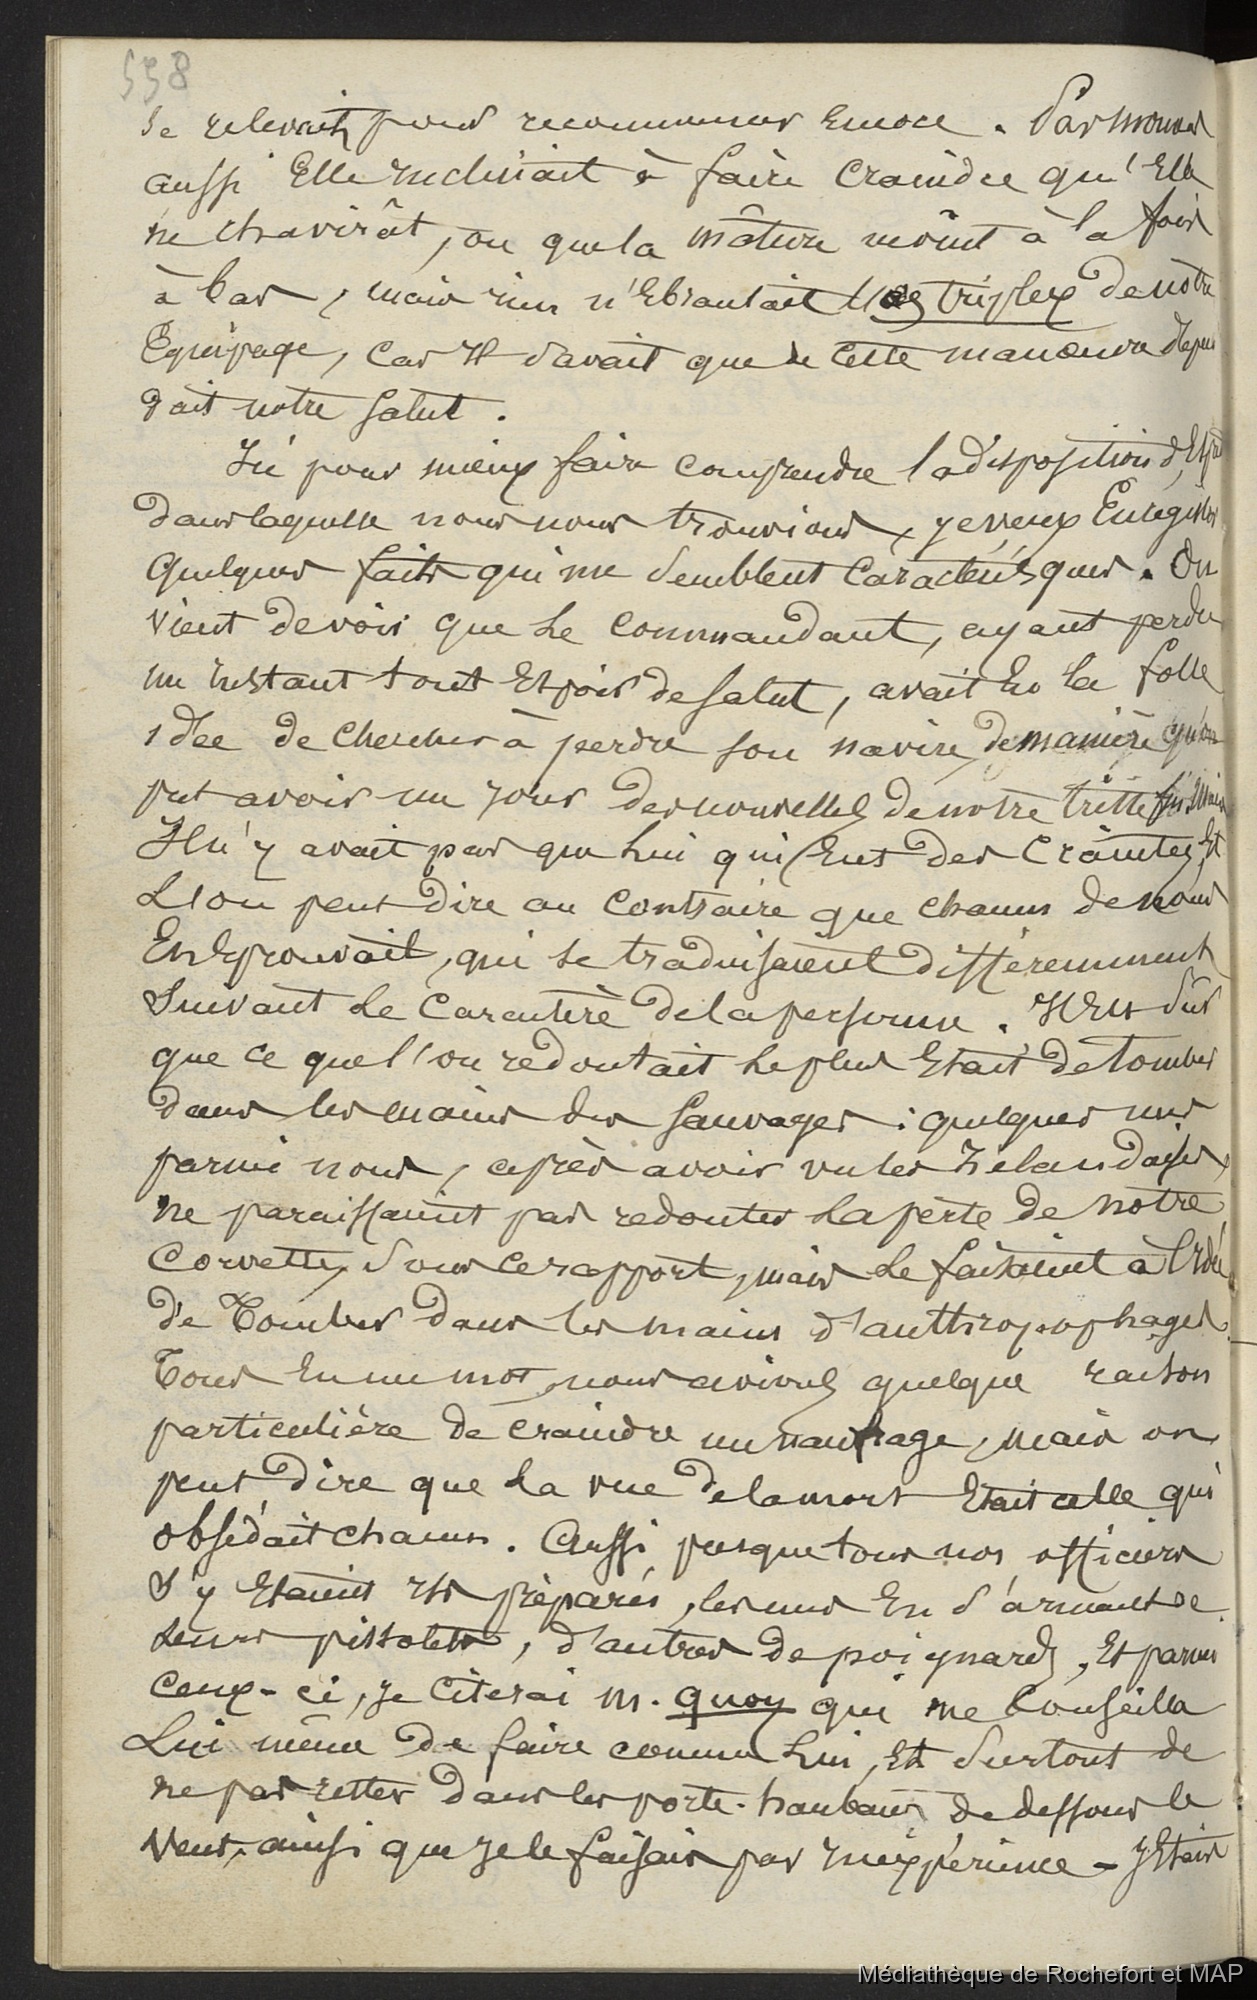 558
se relevait pour recommencer encore. Par moment
aussi Elle inclinait à faire craindre qu'Elle
ne chavirât, ou que la mâture ne vînt à la fois
à bas, mais rien n'Ebranlait l'œs triplex de notre
Equipage, car Il savait que de cette manœuvre dépen
dait notre salut.
Ici pour mieux faire comprendre la disposition d'Esprit
dans laquelle nous nous trouvions, je veux Enregistrer
quelques faits qui me semblent caractéristiques. On
vient de voir que le commandant, ayant perdu
un instant tout Espoir de salut, avait Eu la folle
idée de chercher à perdre son navire de manière qu'on
put avoir un jour des nouvelles de notre triste fin. Mais
Il n'y avait pas que lui qui Eut des craintes, Et
L'on peut dire au contraire que chacun de nous
En Eprouvait, qui se traduisaient différemment
suivant le caractère de la personne. Il Est sûr
que ce que l'on redoutait le plus Etait de tomber
dans les mains des sauvages: quelques uns
parmi nous, après avoir vu les Zélandaises,
ne paraissaient pas redouter la perte de notre
Corvette, sous ce rapport, mais le faisaient à l'Idée
de Tomber dans les mains d'anthropophages.
Tous En un mot, nous avions quelque raison
particulière de craindre un naufrage, mais on
peut dire que la vue de la mort Etait celle qui
obsédait chacun. Aussi presque tous nos officiers
s'y Etaient Ils préparés, les uns En s'armant de
Leurs pistolets, d'autres de poignards, Et parmi
Ceux-ci, je citerai m. quoy qui me Conseilla
Lui même de faire comme lui, Et surtout de
ne pas rester dans les porte-haubans de dessous le
Vent, ainsi que je le faisais par Inexpérience - J'Etais
Médiathèque de Rochefort et MAP